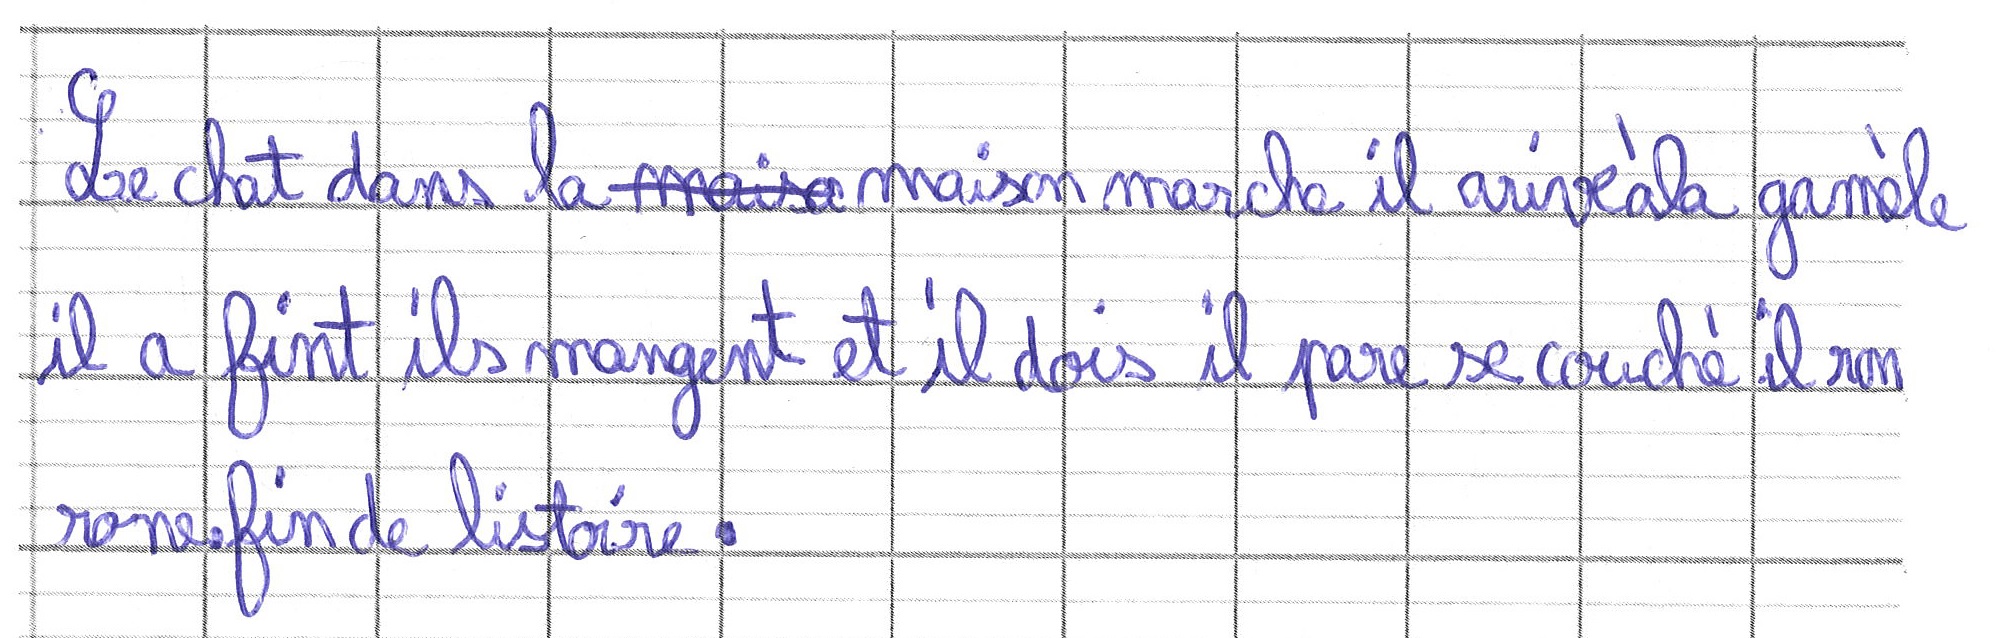 Le chat dans la maiso maison marche il arivéàla gamèle
il a fint ils mangent et il dois il pare se couché il ron
rone.fin de listoire.